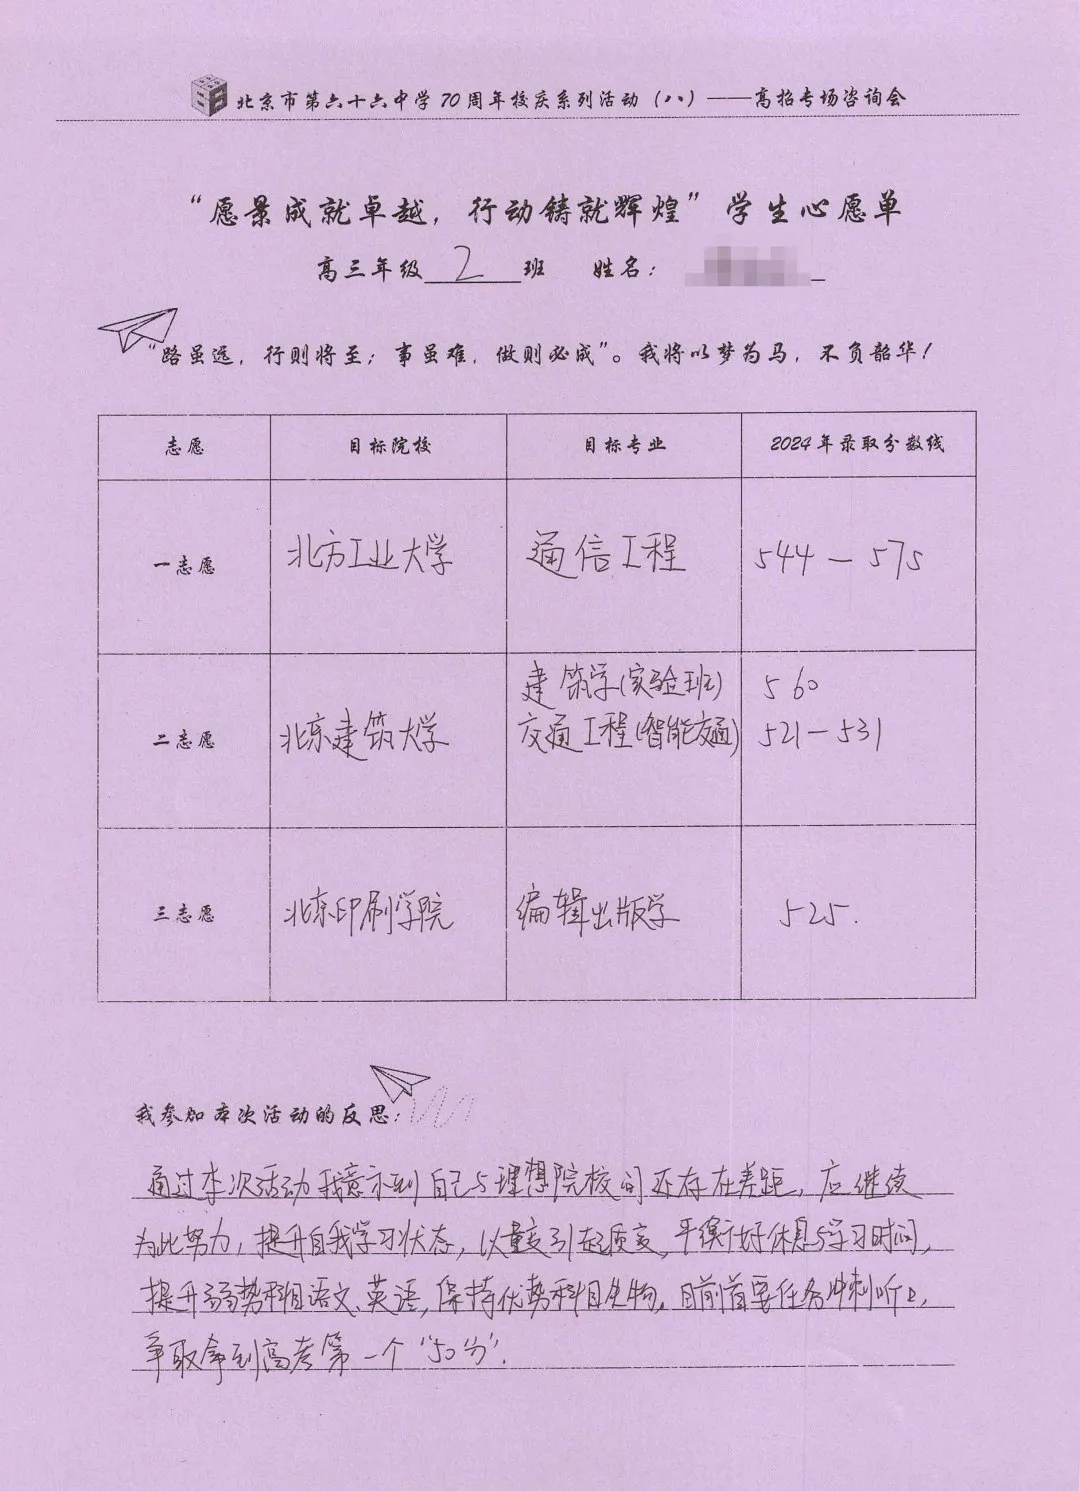 北京市第六十六中学70周年校庆系列活动（八）——高招专场咨询会
“愿景成就卓越，行动铸就辉煌”学生心愿单
高三年级 2 班 姓名：
“路虽远，行则将至；事虽难，做则必成”。我将以梦为马，不负韶华！
志愿 目标院校 目标专业 2024年录取分数线
一志愿 北方工业大学 通信工程 544—575
二志愿 北京建筑大学 建筑学(实验班) 560
交通工程(智能交通) 521—531
三志愿 北京印刷学院 编辑出版学 525.
我参加本次活动的反思：
通过本次活动我意识到自己与理想院校间还存在差距，应继续
为此努力，提升自我学习状态，以量变引起质变，平衡好休息与学习时间，
提升弱势科目语文、英语，保持优势科目生物。目前首要任务冲刺听口，
争取拿到高考第一个“50分”.